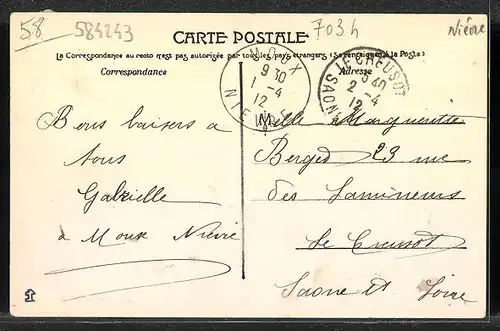 58 584243 7034 Nièvre
CARTE POSTALE
La Correspondance au recto n'est pas autorisée par tous les pays étrangers (Se renseigner à la Poste)
Correspondance
Adresse
MOUX
9 30
2 -4
12
NIEVRE
LE CREUSOT
2 -4
12
SAONE
Bons baisers a
tous
Gabrielle
a Moux Nievre
Melle Marguerite
Berged 23 rue
des Lamineurs
Le Creusot
Saone et Loire